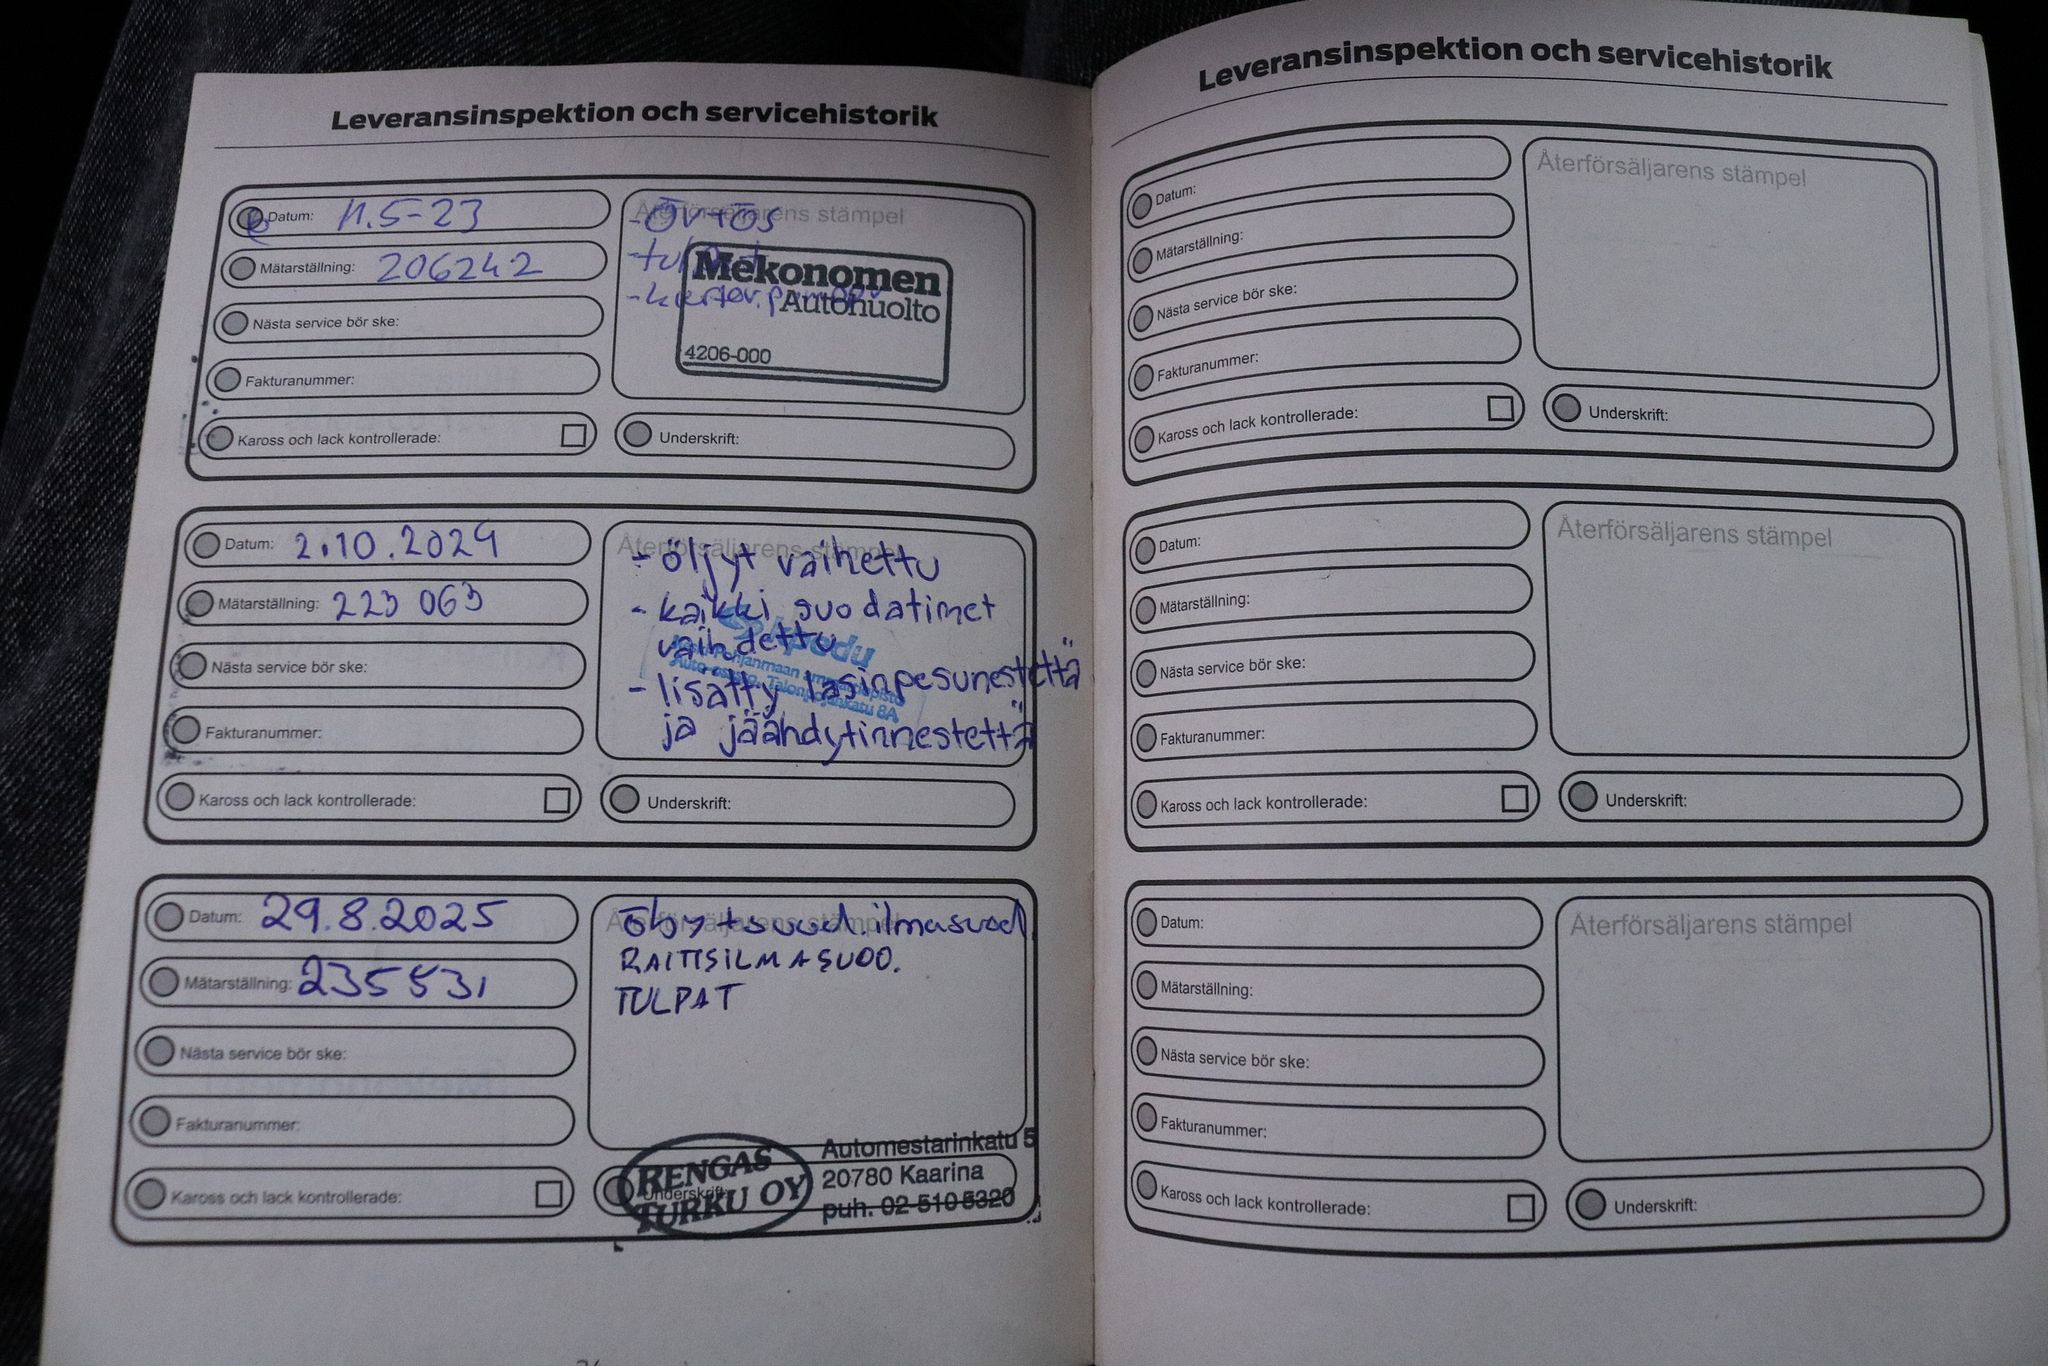 Leveransinspektion och servicehistorik
Datum: 11.5-23
Mätarställning: 206242
Nästa service bör ske:
Fakturanummer:
Kaross och lack kontrollerade:
Återförsäljarens stämpel
Mekonomen
Autohuolto
4206-000
Underskrift:
Datum: 2.10.2024
Mätarställning: 223 063
Nästa service bör ske:
Fakturanummer:
Kaross och lack kontrollerade:
Återförsäljarens stämpel
- öljyt vaihettu
- kaikki suodatimet
vaihdettu
- lisätty lasinpesunestettä
ja jäähdytinnestettä
Talonpojankatu 8A
Underskrift:
Datum: 29.8.2025
Mätarställning: 235531
Nästa service bör ske:
Fakturanummer:
Kaross och lack kontrollerade:
Återförsäljarens stämpel
öljy+suod. ilmasuod.
RAITISILMASUOD.
TULPAT
Underskrift:
RENGAS
TURKU OY
Automestarinkatu 5
20780 Kaarina
puh. 02-510 5320
Leveransinspektion och servicehistorik
Datum:
Mätarställning:
Nästa service bör ske:
Fakturanummer:
Kaross och lack kontrollerade:
Återförsäljarens stämpel
Underskrift:
Datum:
Mätarställning:
Nästa service bör ske:
Fakturanummer:
Kaross och lack kontrollerade:
Återförsäljarens stämpel
Underskrift:
Datum:
Mätarställning:
Nästa service bör ske:
Fakturanummer:
Kaross och lack kontrollerade:
Återförsäljarens stämpel
Underskrift: